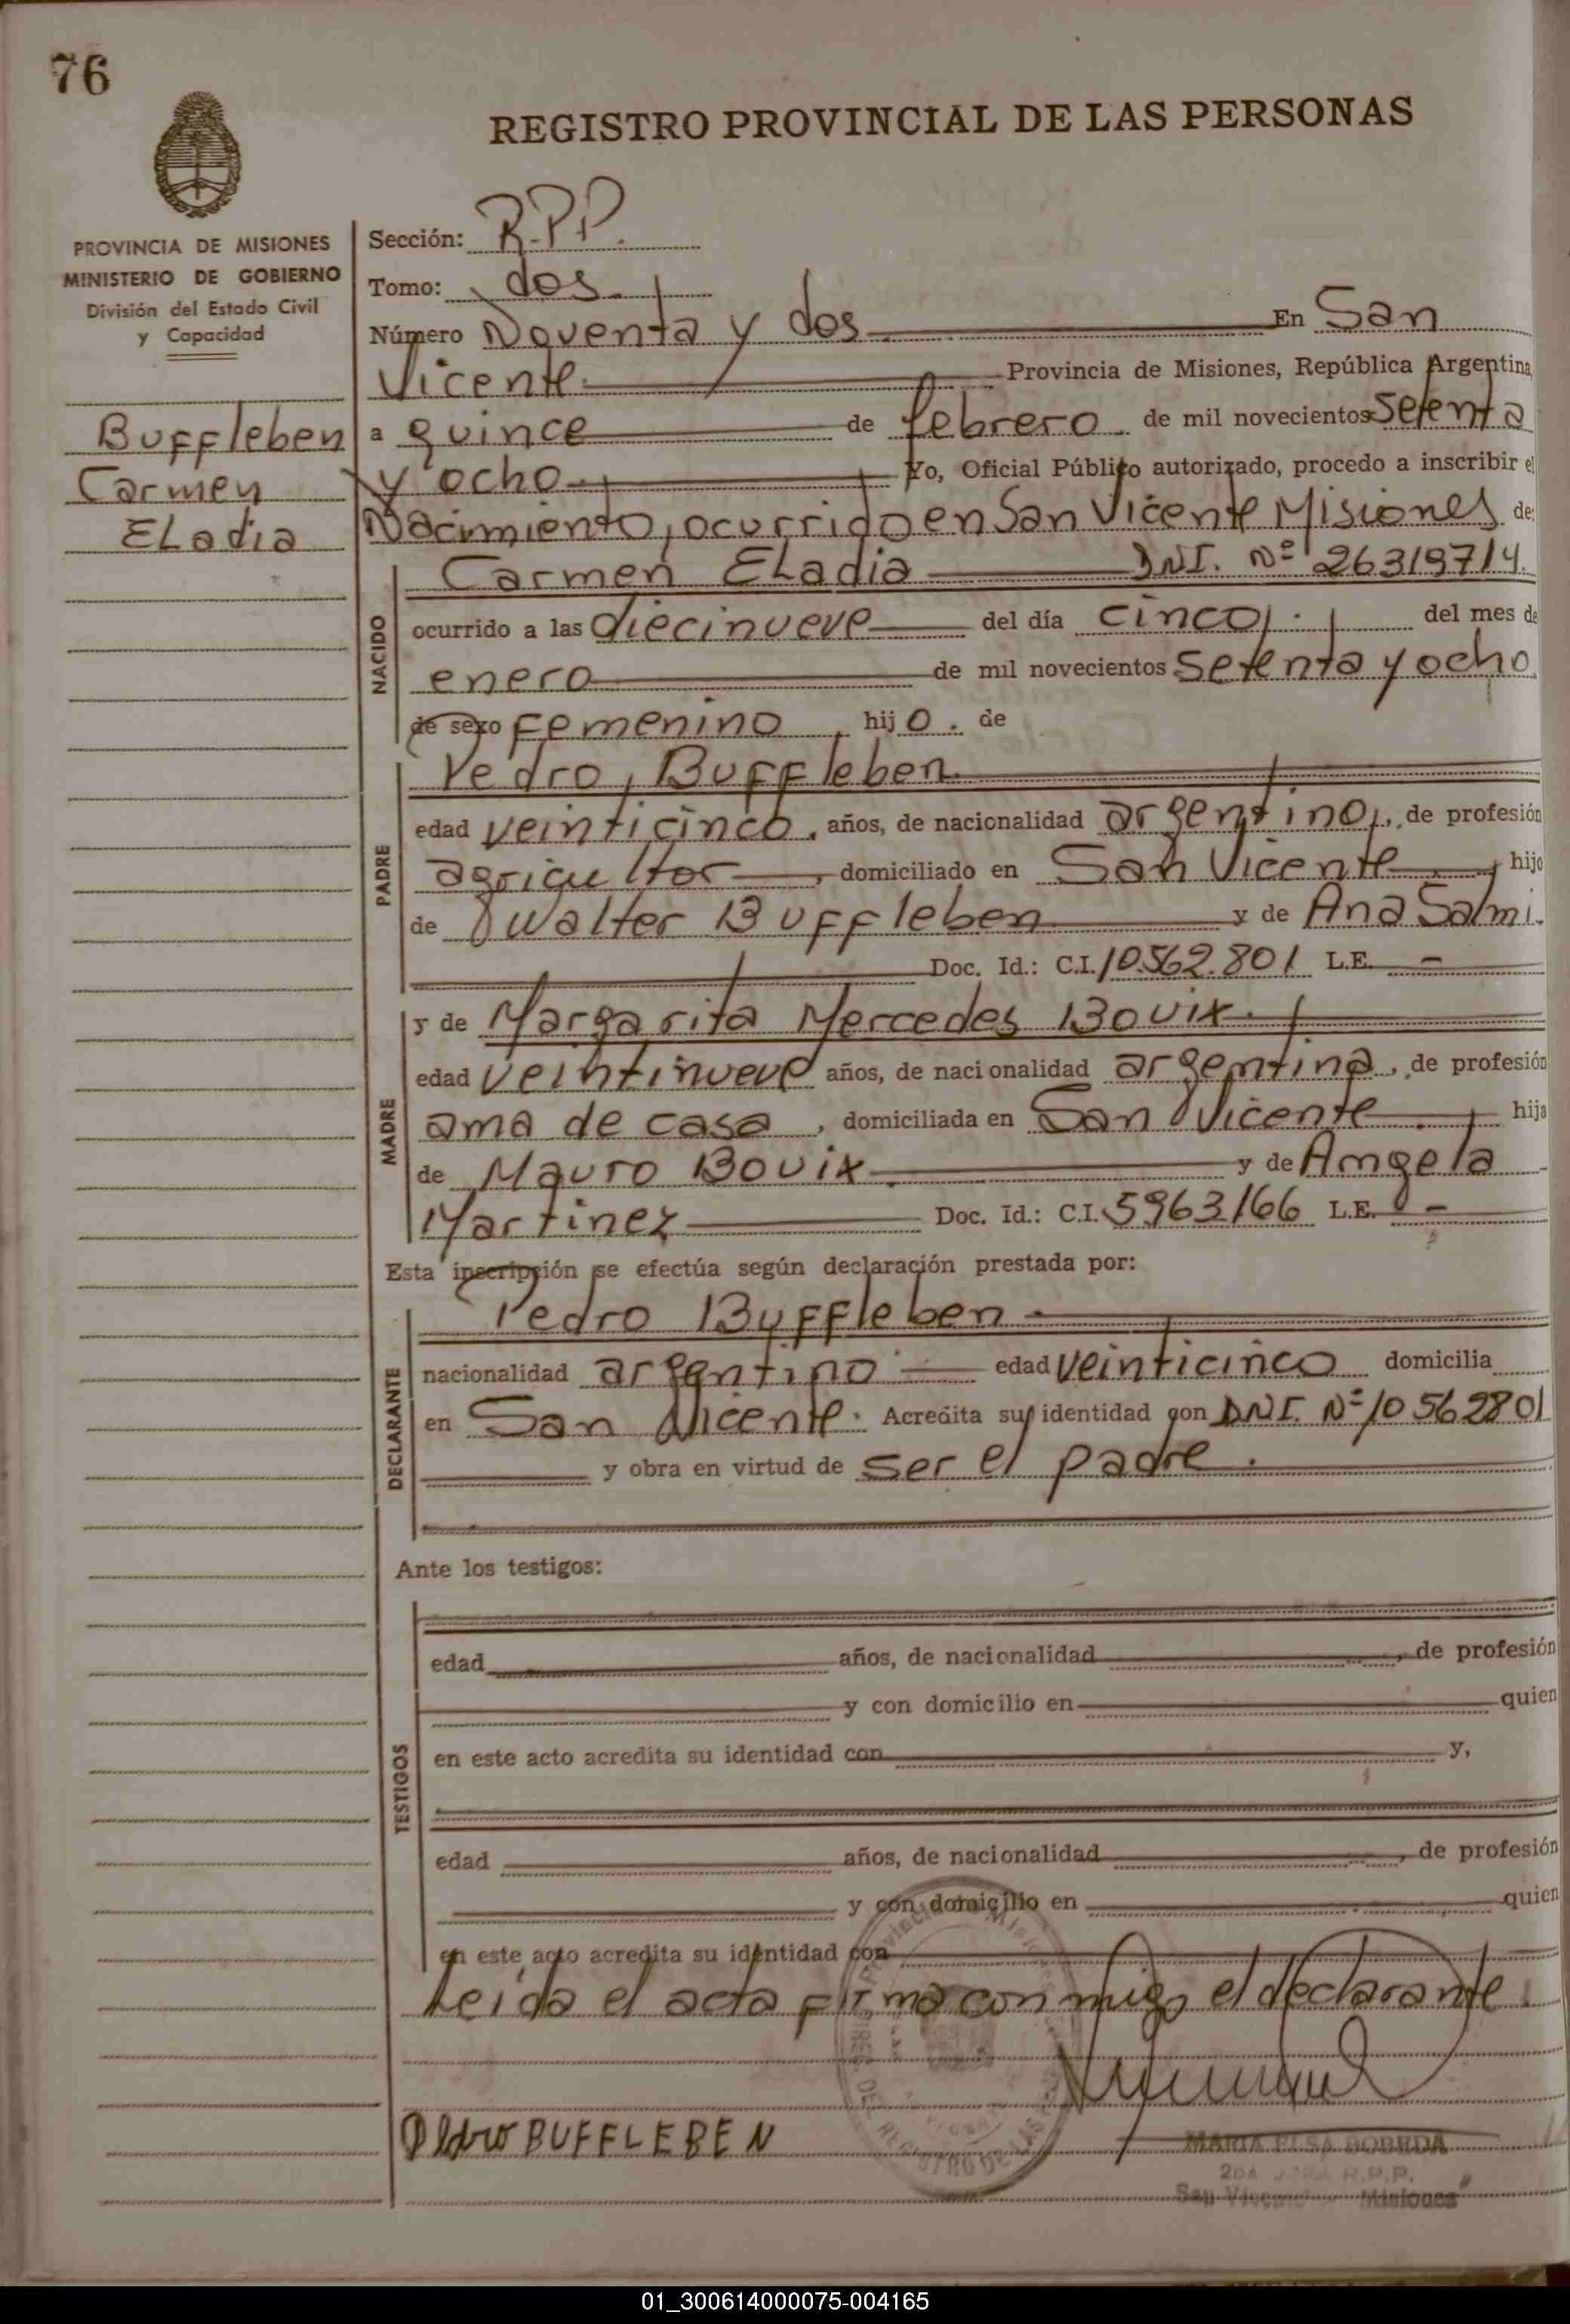 76
REGISTRO PROVINCIAL DE LAS PERSONAS
PROVINCIA DE MISIONES
MINISTERIO DE GOBIERNO
División del Estado Civil
y Capacidad
Buffleben
Carmen
ELadia
Sección: R.P.P.
Tomo: dos.
Número Noventa y dos. En San
Vicente. Provincia de Misiones, República Argentina,
a quince de febrero de mil novecientos setenta
y ocho. Yo, Oficial Público autorizado, procedo a inscribir el
Nacimiento, ocurrido en San Vicente Misiones de:
NACIDO
Carmen ELadia DNI. Nº 26319714.
ocurrido a las diecinueve del día cinco. del mes de
enero de mil novecientos setenta y ocho
de sexo Femenino, hijo. de
PADRE
Pedro, Buffleben.
edad veinticinco, años, de nacionalidad argentino, de profesión
agricultor, domiciliado en San Vicente, hijo
de Walter Buffleben y de Ana Salmi.
Doc. Id.: C.I. 10.562.801 L.E. -
MADRE
y de Margarita Mercedes Bouix.
edad veintinueve años, de nacionalidad argentina, de profesión
ama de casa, domiciliada en San Vicente, hija
de Mauro Bouix. y de Amgela
Martinez Doc. Id.: C.I. 5963166 L.E. -
Esta inscripción se efectúa según declaración prestada por:
DECLARANTE
Pedro Buffleben.
nacionalidad argentino edad veinticinco domicilia
en San Vicente. Acredita su identidad con DNI. Nº 10562801
y obra en virtud de ser el padre.
Ante los testigos:
TESTIGOS
edad años, de nacionalidad, de profesión
y con domicilio en quien
en este acto acredita su identidad con y,
edad años, de nacionalidad, de profesión
y con domicilio en quien
en este acto acredita su identidad con
Leida el acta firma conmigo el declarante.
Pedro BUFFLEBEN
MARIA ELSA BOBEDA
R.P.P.
San Vicente - Misiones
01_300614000075-004165